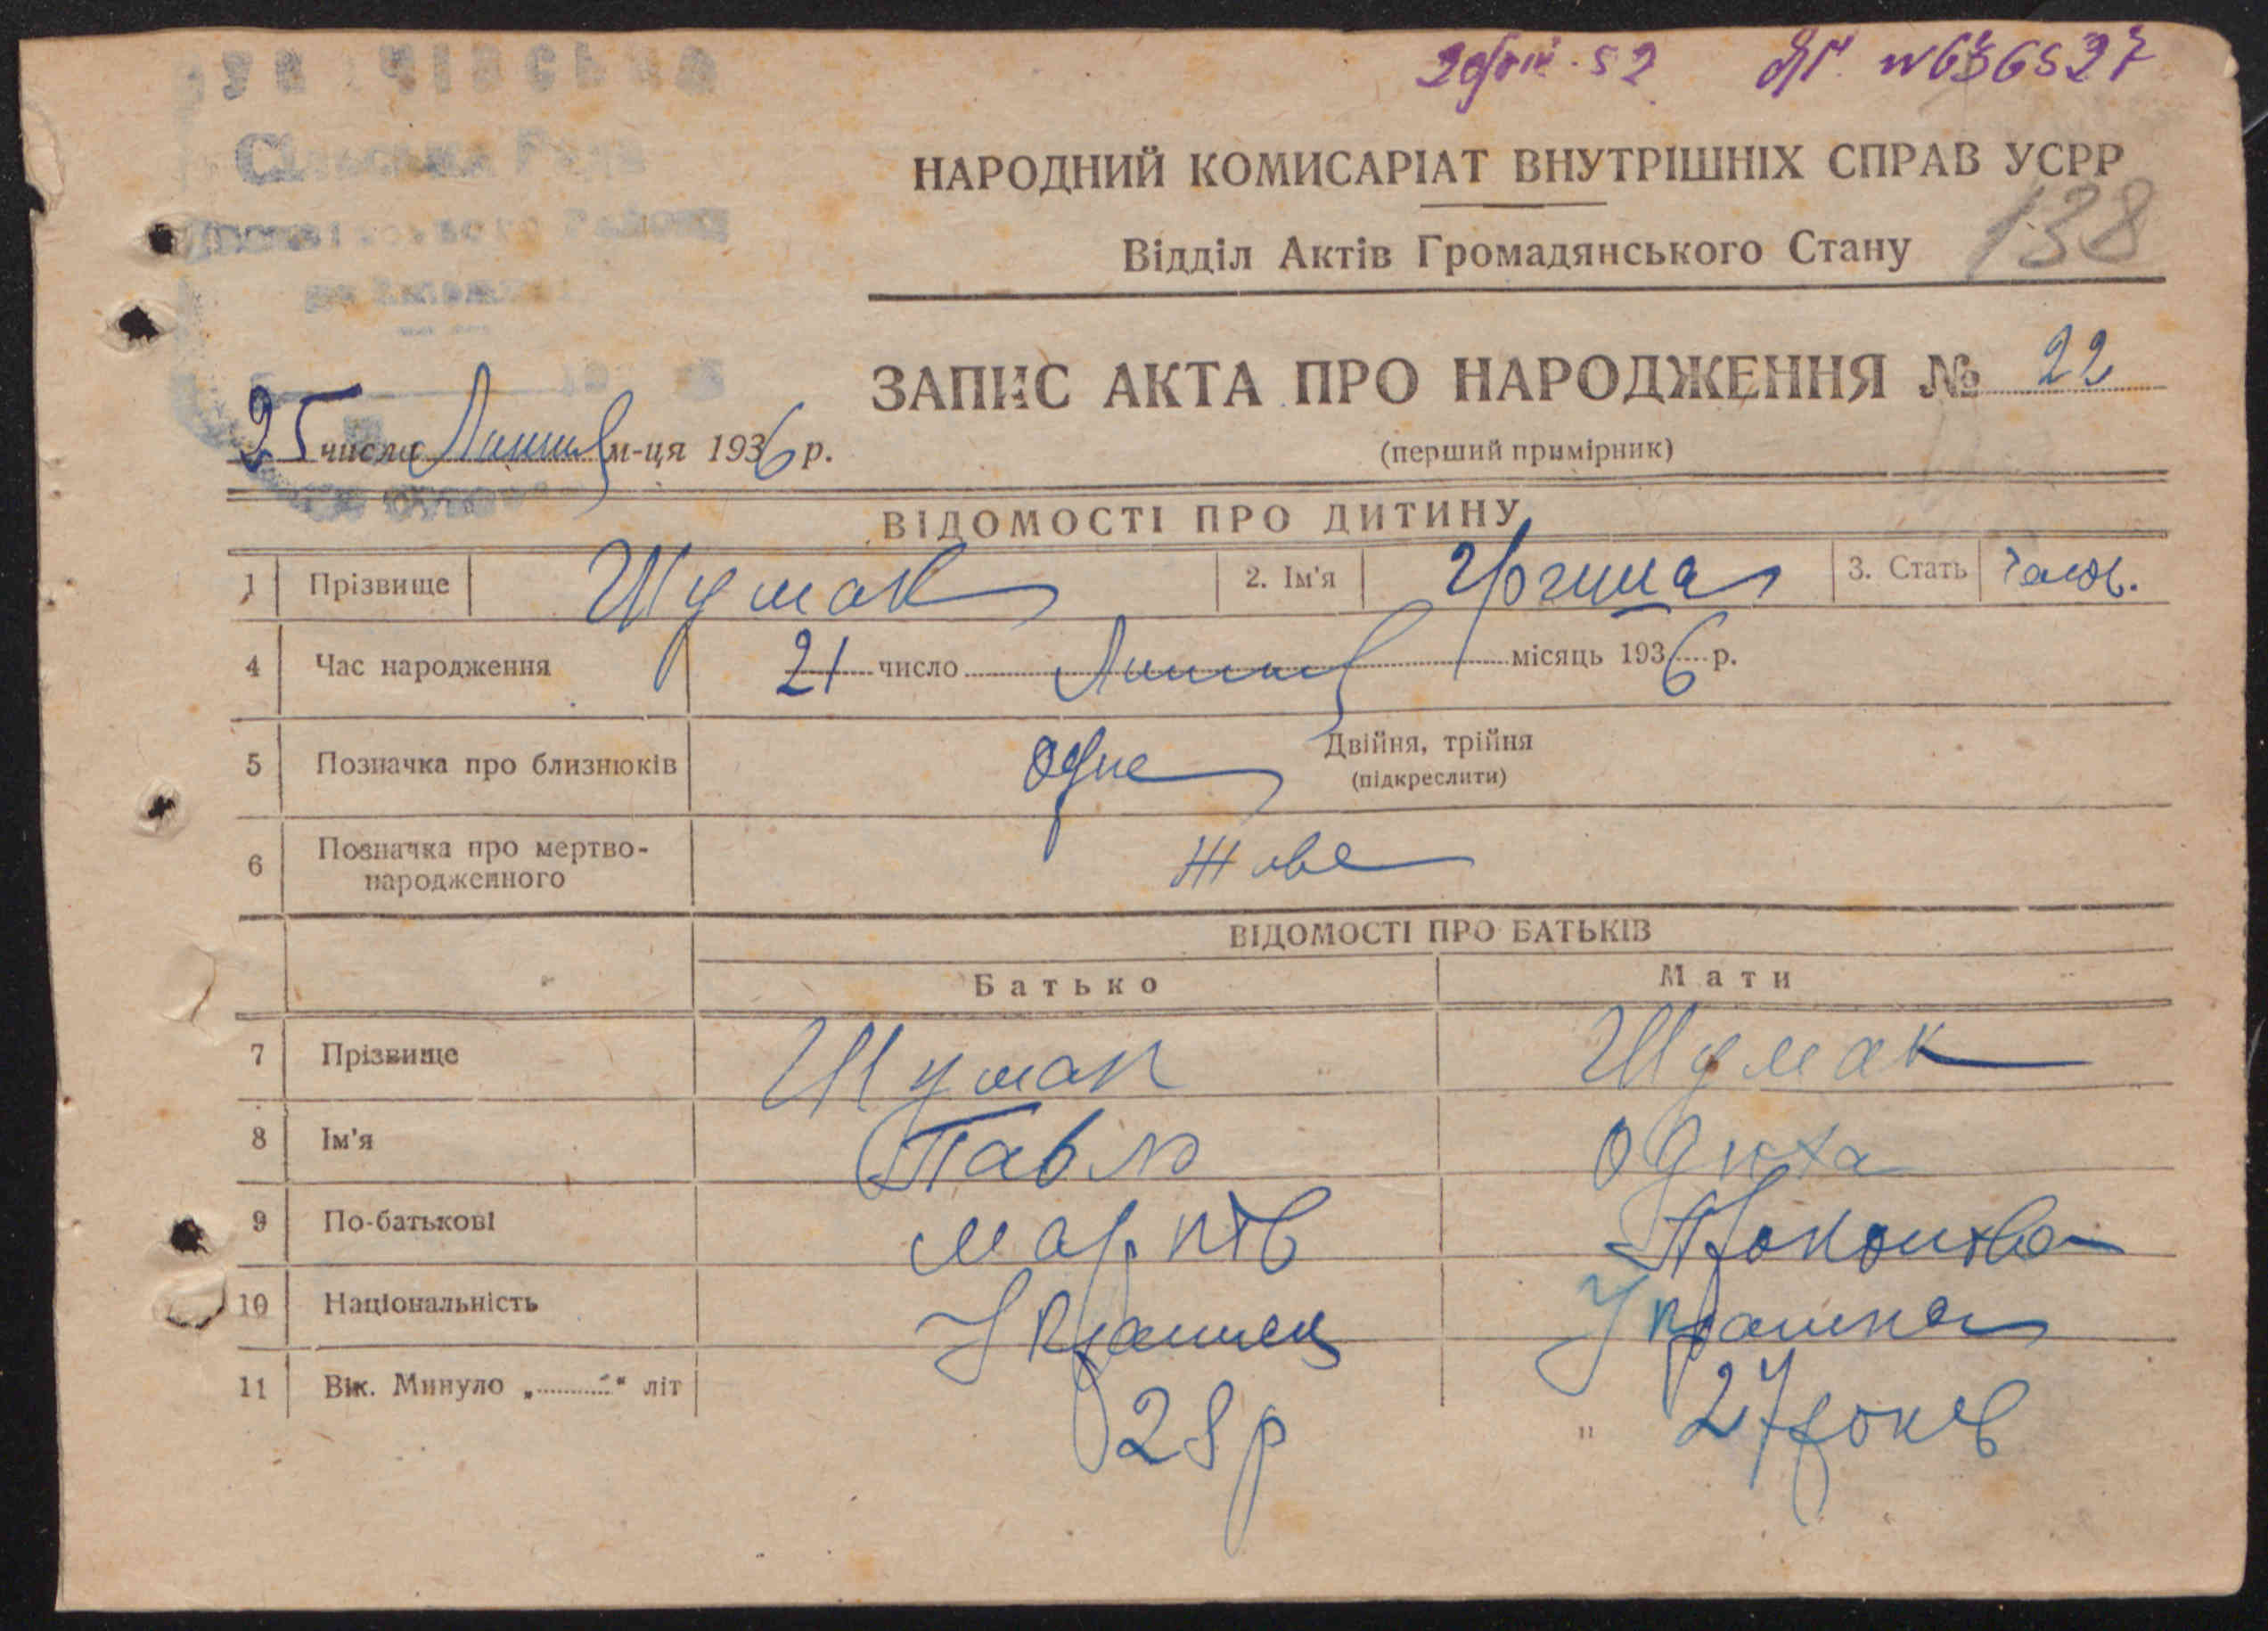 52
№636527
НАРОДНИЙ КОМИСАРІАТ ВНУТРІШНІХ СПРАВ УСРР
138
Відділ Актів Громадянського Стану
Сільська Рада
Району
ЗАПИС АКТА ПРО НАРОДЖЕННЯ № 22
25 числа Липня м-ця 1936 р.
(перший примірник)
ВІДОМОСТІ ПРО ДИТИНУ
1 Прізвище Шумак 2. Ім'я 3. Стать чолов.
4 Час народження 21 число Липня місяць 1936 р.
5 Позначка про близнюків одне Двійня, трійня
(підкреслити)
6 Позначка про мертво-
народженного Живе
ВІДОМОСТІ ПРО БАТЬКІВ
Батько Мати
7 Прізвище Шумак Шумак
8 Ім'я Павло
9 По-батькові
10 Національність Українець Українка
11 Вік. Минуло „ " літ 28 р 27 років